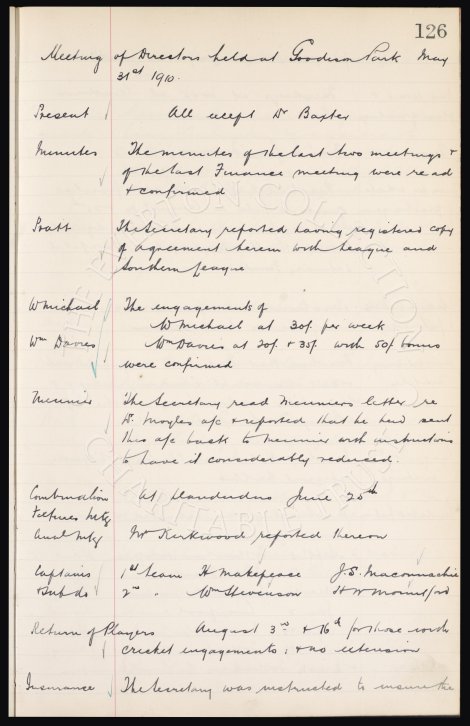 126
Meeting of Directors held at Goodison Park May
31st 1910.
Present All except Dr Baxter
Minutes The minutes of the last two meetings &
of the last Finance meeting were read
& confirmed
Pratt The Secretary reported having registered copy
of agreement herein with League and
Southern League
W Michael The engagements of
W Michael at 30/- per week
Wm Davies Wm Davies at 20/- & 35/- with 50/- bonus
were confirmed
Meunier The Secretary read Meuniers letter re
Dr Moyles a/c & reported that he had sent
this a/c back to Meunier with instructions
to have it considerably reduced.
Combination At Llandudno June 25th
Fixtures Mtg
Anul Mtg Mr Kirkwood reported thereon
Captains 1st team H Makepeace J.S. Maconnachie
& Sub do 2nd " Wm Stevenson H W Mountford
Return of Players August 3rd & 16th for those with
cricket engagements; & no extension
Insurance The Secretary was instructed to insure the
THE EVERTON COLLECTION
CHARITABLE TRUST